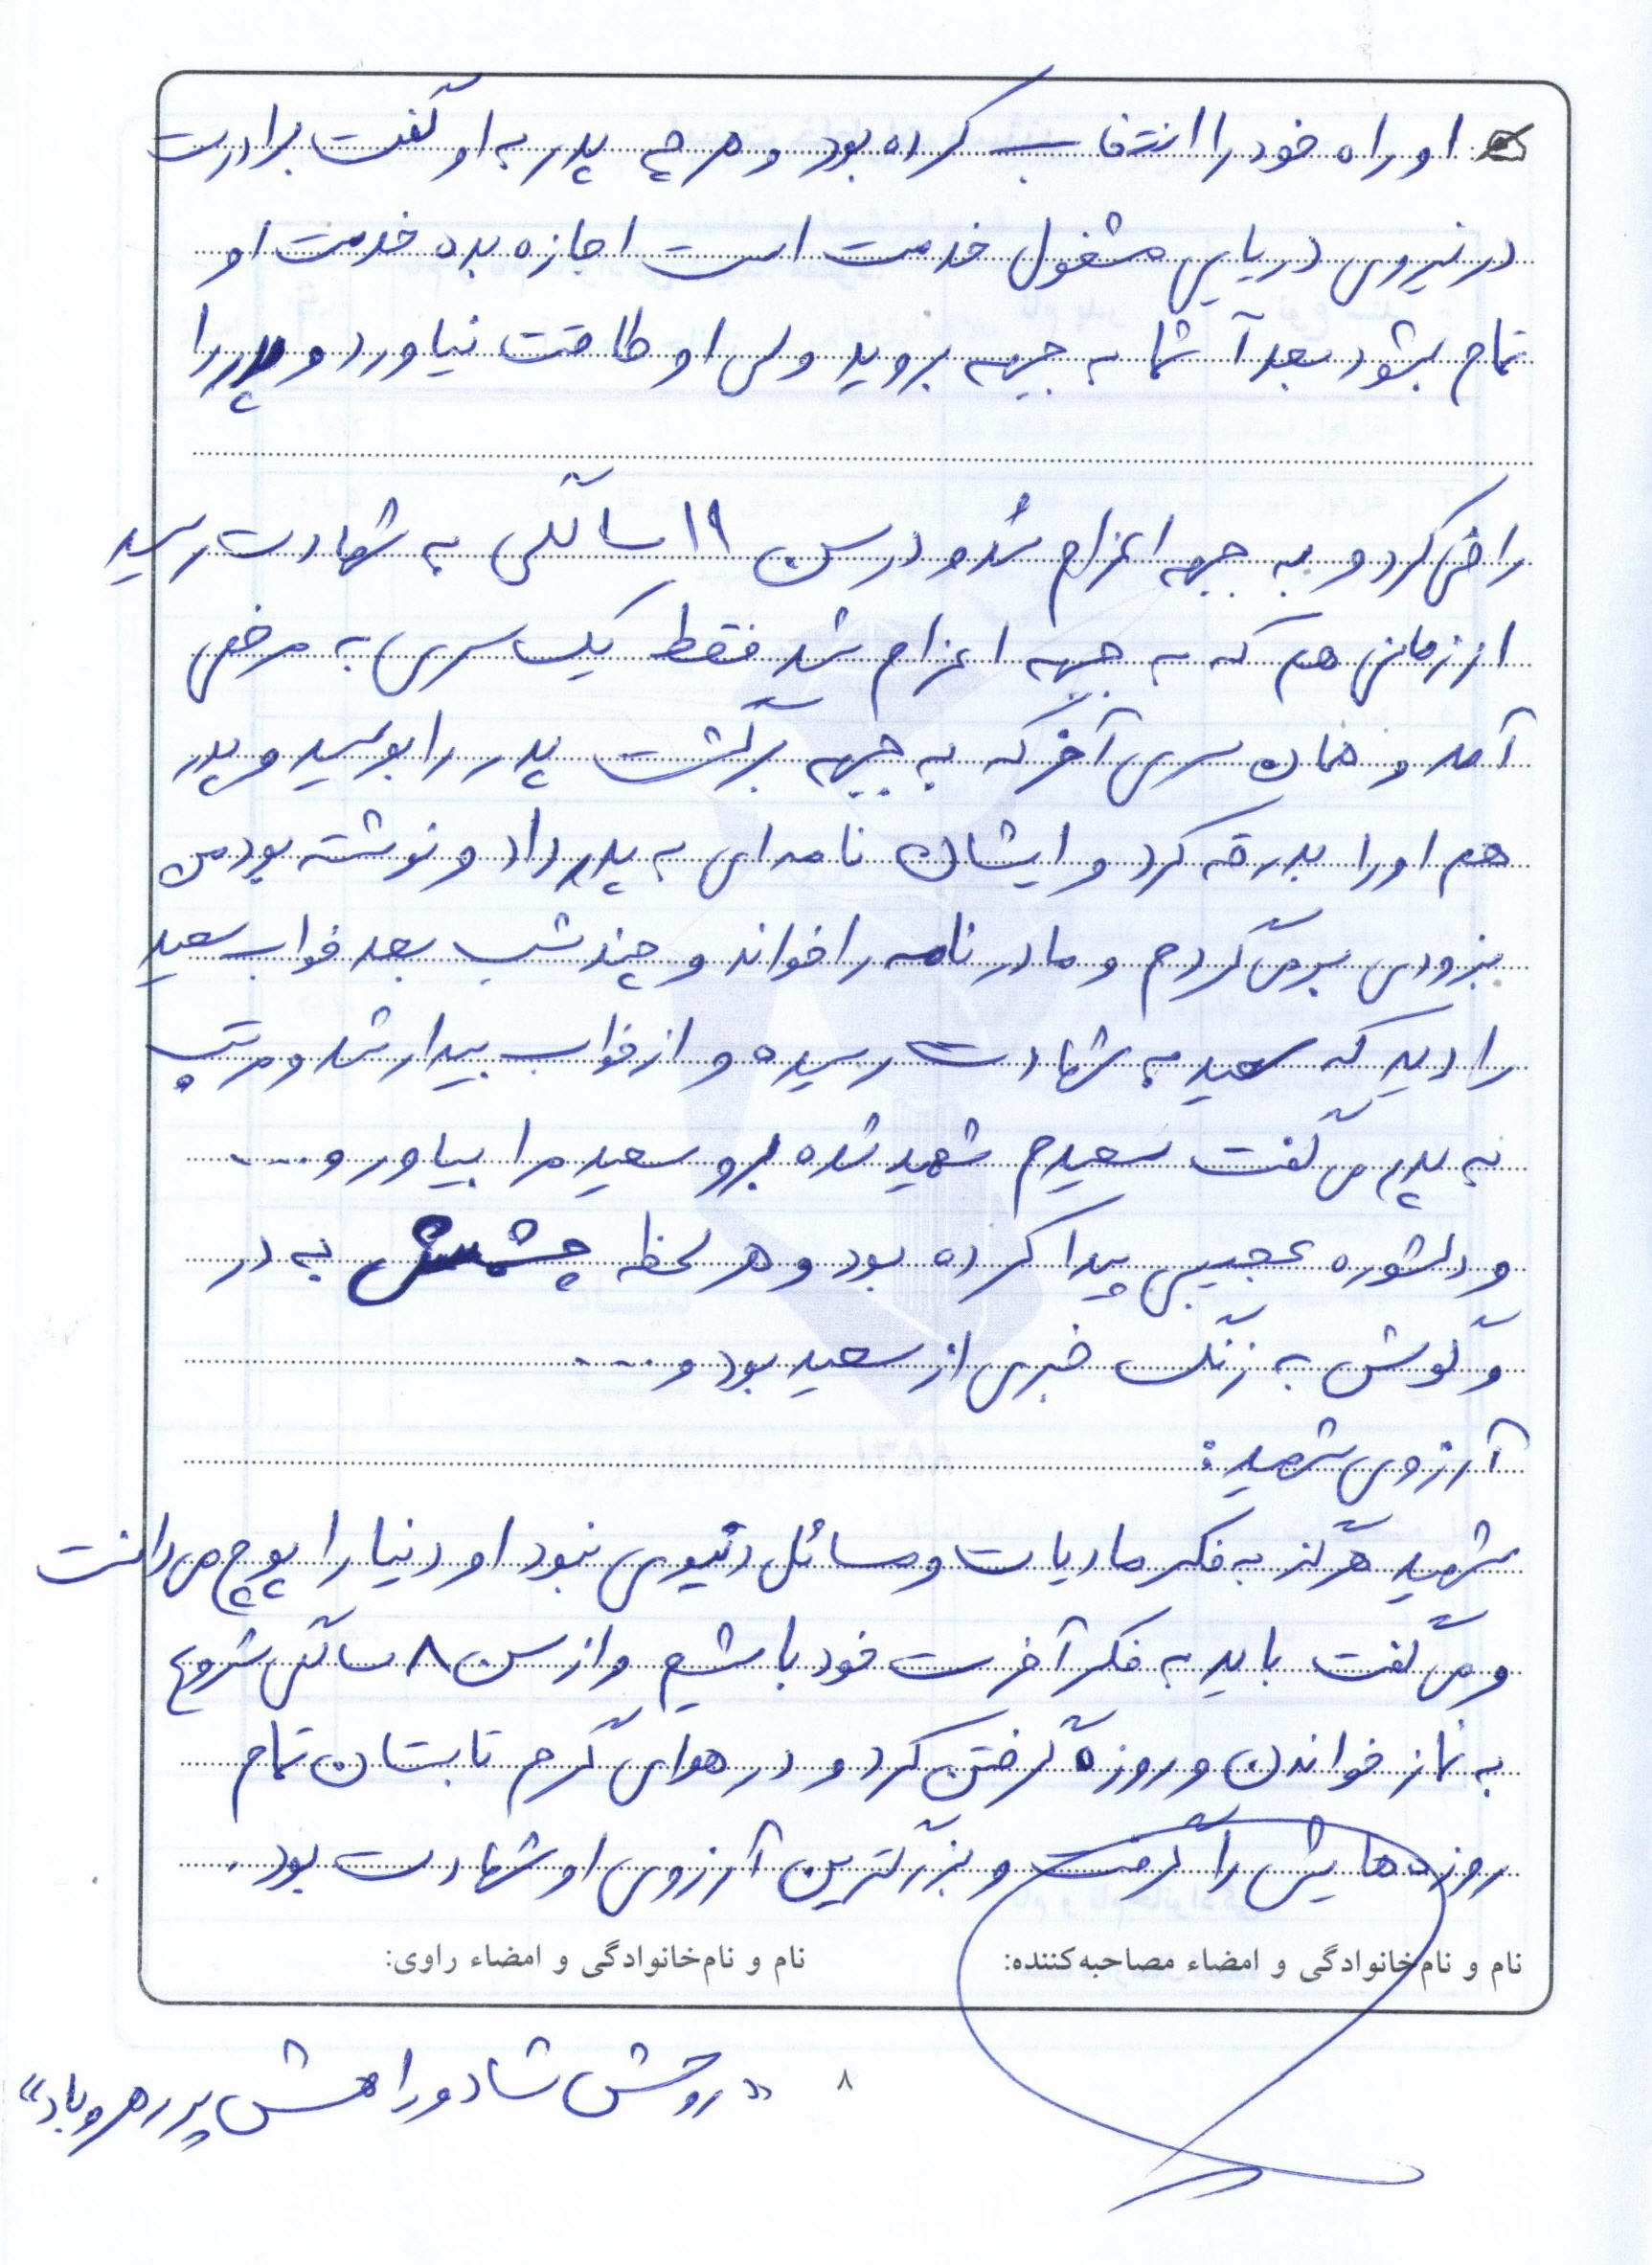 او راه خود را انتخاب کرده بود و هر چه پدر به او گفت برادرت
در نیروی دریایی مشغول خدمت است اجازه بده خدمت او
تمام بشود بعد آ شما به جبهه بروید ولی او طاقت نیاورد و پدر را
راضی کرد و به جبهه اعزام شد و در سن ۱۹ سالگی به شهادت رسید
از زمانی هم که به جبهه اعزام شد فقط یک سری به مرخصی
آمد و همان سری آخر که به جبهه برگشت پدر را بوسید و پدر
هم او را بدرقه کرد و ایشان نامه‌ای به پدر داد و نوشته بود من
بزودی برمی‌گردم و مادر نامه را خواند و چند شب بعد خواب سعید
را دید که سعید به شهادت رسیده و از خواب بیدار شد و مرتب
به پدر می‌گفت سعیدم شهید شده برو سعید مرا بیاور و ....
و دلشوره عجیبی پیدا کرده بود و هر لحظه چشمش به در
و گوش به زنگ خبری از سعید بود و ....
آرزوی شهید:
شهید هرگز به فکر مادیات و مسائل دنیوی نبود او دنیا را پوچ می‌دانست
و می‌گفت باید به فکر آخرت خود باشیم و از سن ۸ سالگی شروع
به نماز خواندن و روزه گرفتن کرد و در هوای گرم تابستان تمام
روزه‌هایش را گرفت و بزرگترین آرزوی او شهادت بود.
نام و نام‌خانوادگی و امضاء مصاحبه‌کننده: نام و نام‌خانوادگی و امضاء راوی:
۸
«روحش شاد و راهش پر رهرو باد»